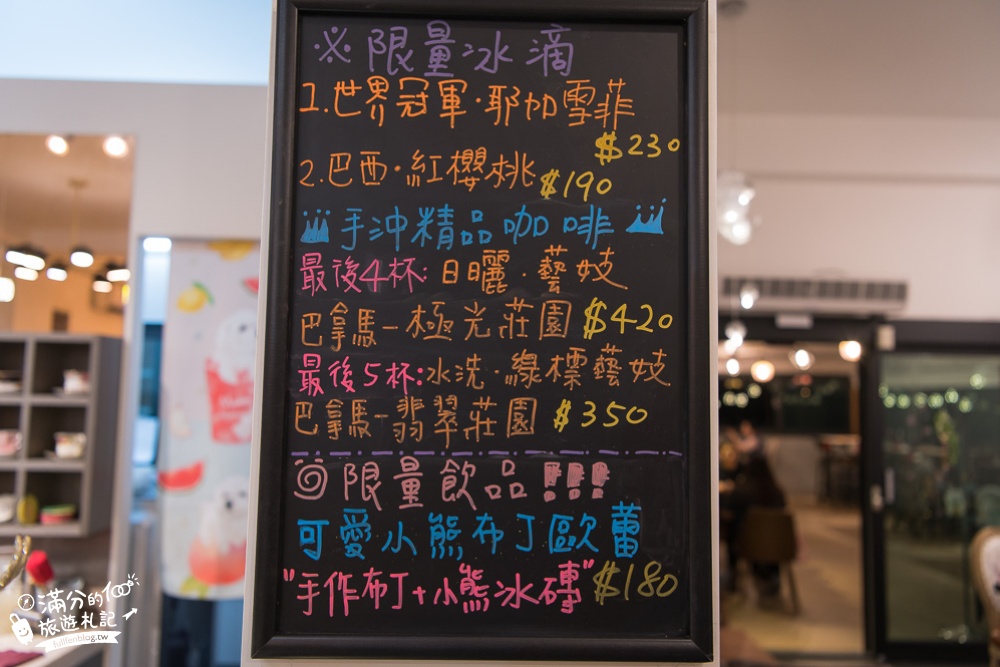 ※限量冰滴
1.世界冠軍·耶加雪菲
$230
2.巴西·紅櫻桃 $190
手沖精品咖啡
最後4杯:日曬·藝妓
巴拿馬-極光莊園 $420
最後5杯:水洗·綠標藝妓
巴拿馬-翡翠莊園 $350
限量飲品!!!
可愛小熊布丁歐蕾
"手作布丁+小熊冰磚" $180
滿分的
旅遊札記
fullfenblog.tw